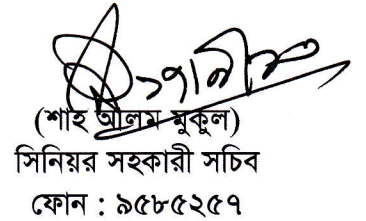 (শাহ আলম মুকুল)
সিনিয়র সহকারী সচিব
ফোন : ৯৫৮৫২৫৭